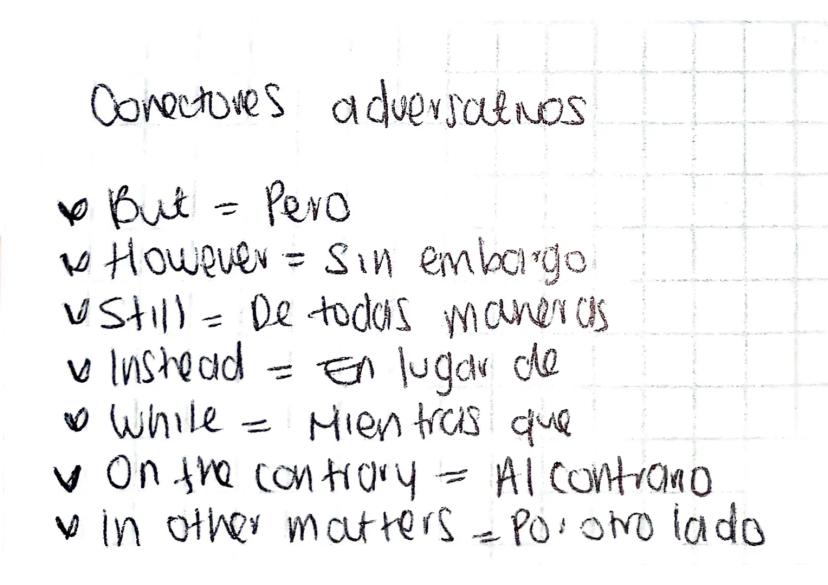 Conectores adversativos
But = Pero
However = Sin embargo
Still = De todas maneras
Instead = En lugar de
While = Mientras que
On the contrary = Al contrario
in other matters = Por otro lado